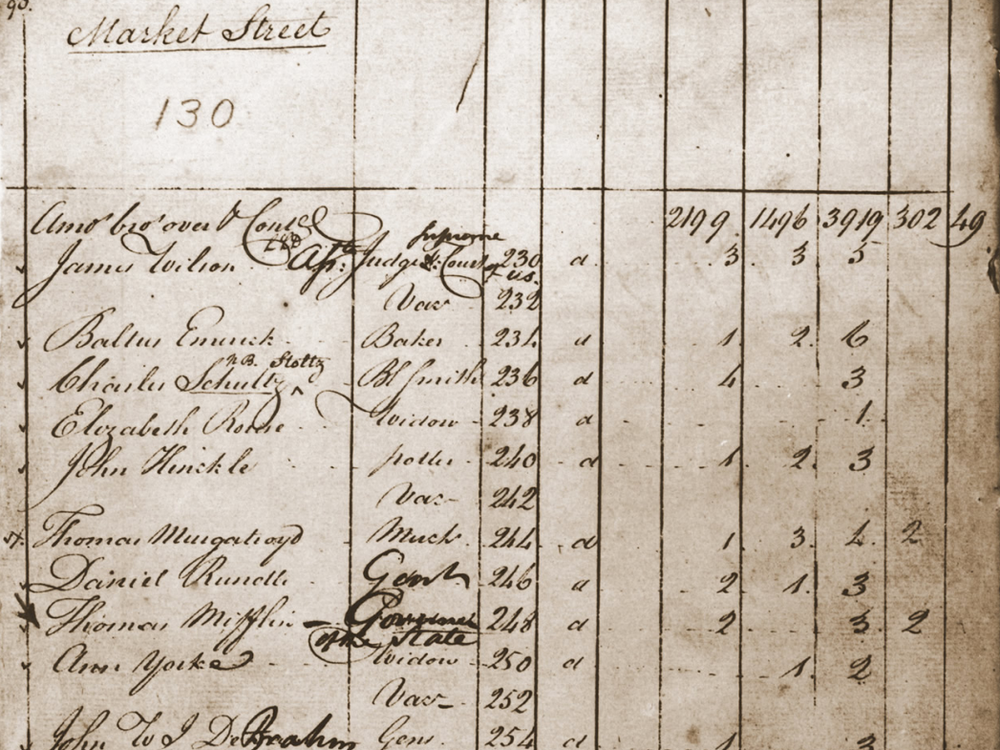 90.
Market Street
130
Amo't bro't over & Cont'd 2199 1496 3919 302 49
James Wilson Esq Ass: Judge Supreme Court of U.S. 230 d 3 3 5
Vac 232
Baltus Emrick Baker 234 d 1 2 6
Charles Schultz N.B. Stoltz Bl Smith 236 d 4 3
Elizabeth Widow 238 d 1
John Hinckle potter 240 d 1 2 3
Vac 242
Thomas Murgatroyd Merch 244 d 1 3 2 2
Daniel Rundle Gent 246 d 2 1 3
Thomas Mifflin – Governor of the State 248 d 2 3 2
Ann Yorke Widow 250 d 1 2
Vac 252
John W I De Braahm Gen. 254 d 1 3